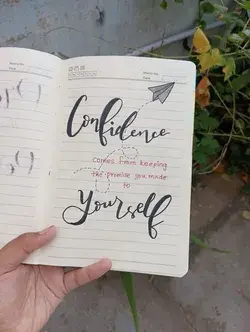 Confidence
comes from keeping
the promise you made
to
Yourself